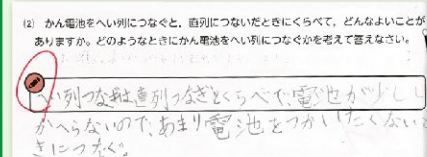 (2) かん電池をへい列につなぐと、直列につないだときにくらべて、どんなよいことが
ありますか。どのようなときにかん電池をへい列につなぐかを考えて答えなさい。
へい列つなぎは直列つなぎとくらべて、電池が少しし
かへらないので、あまり電池をつかいたくないと
きにつなぐ。